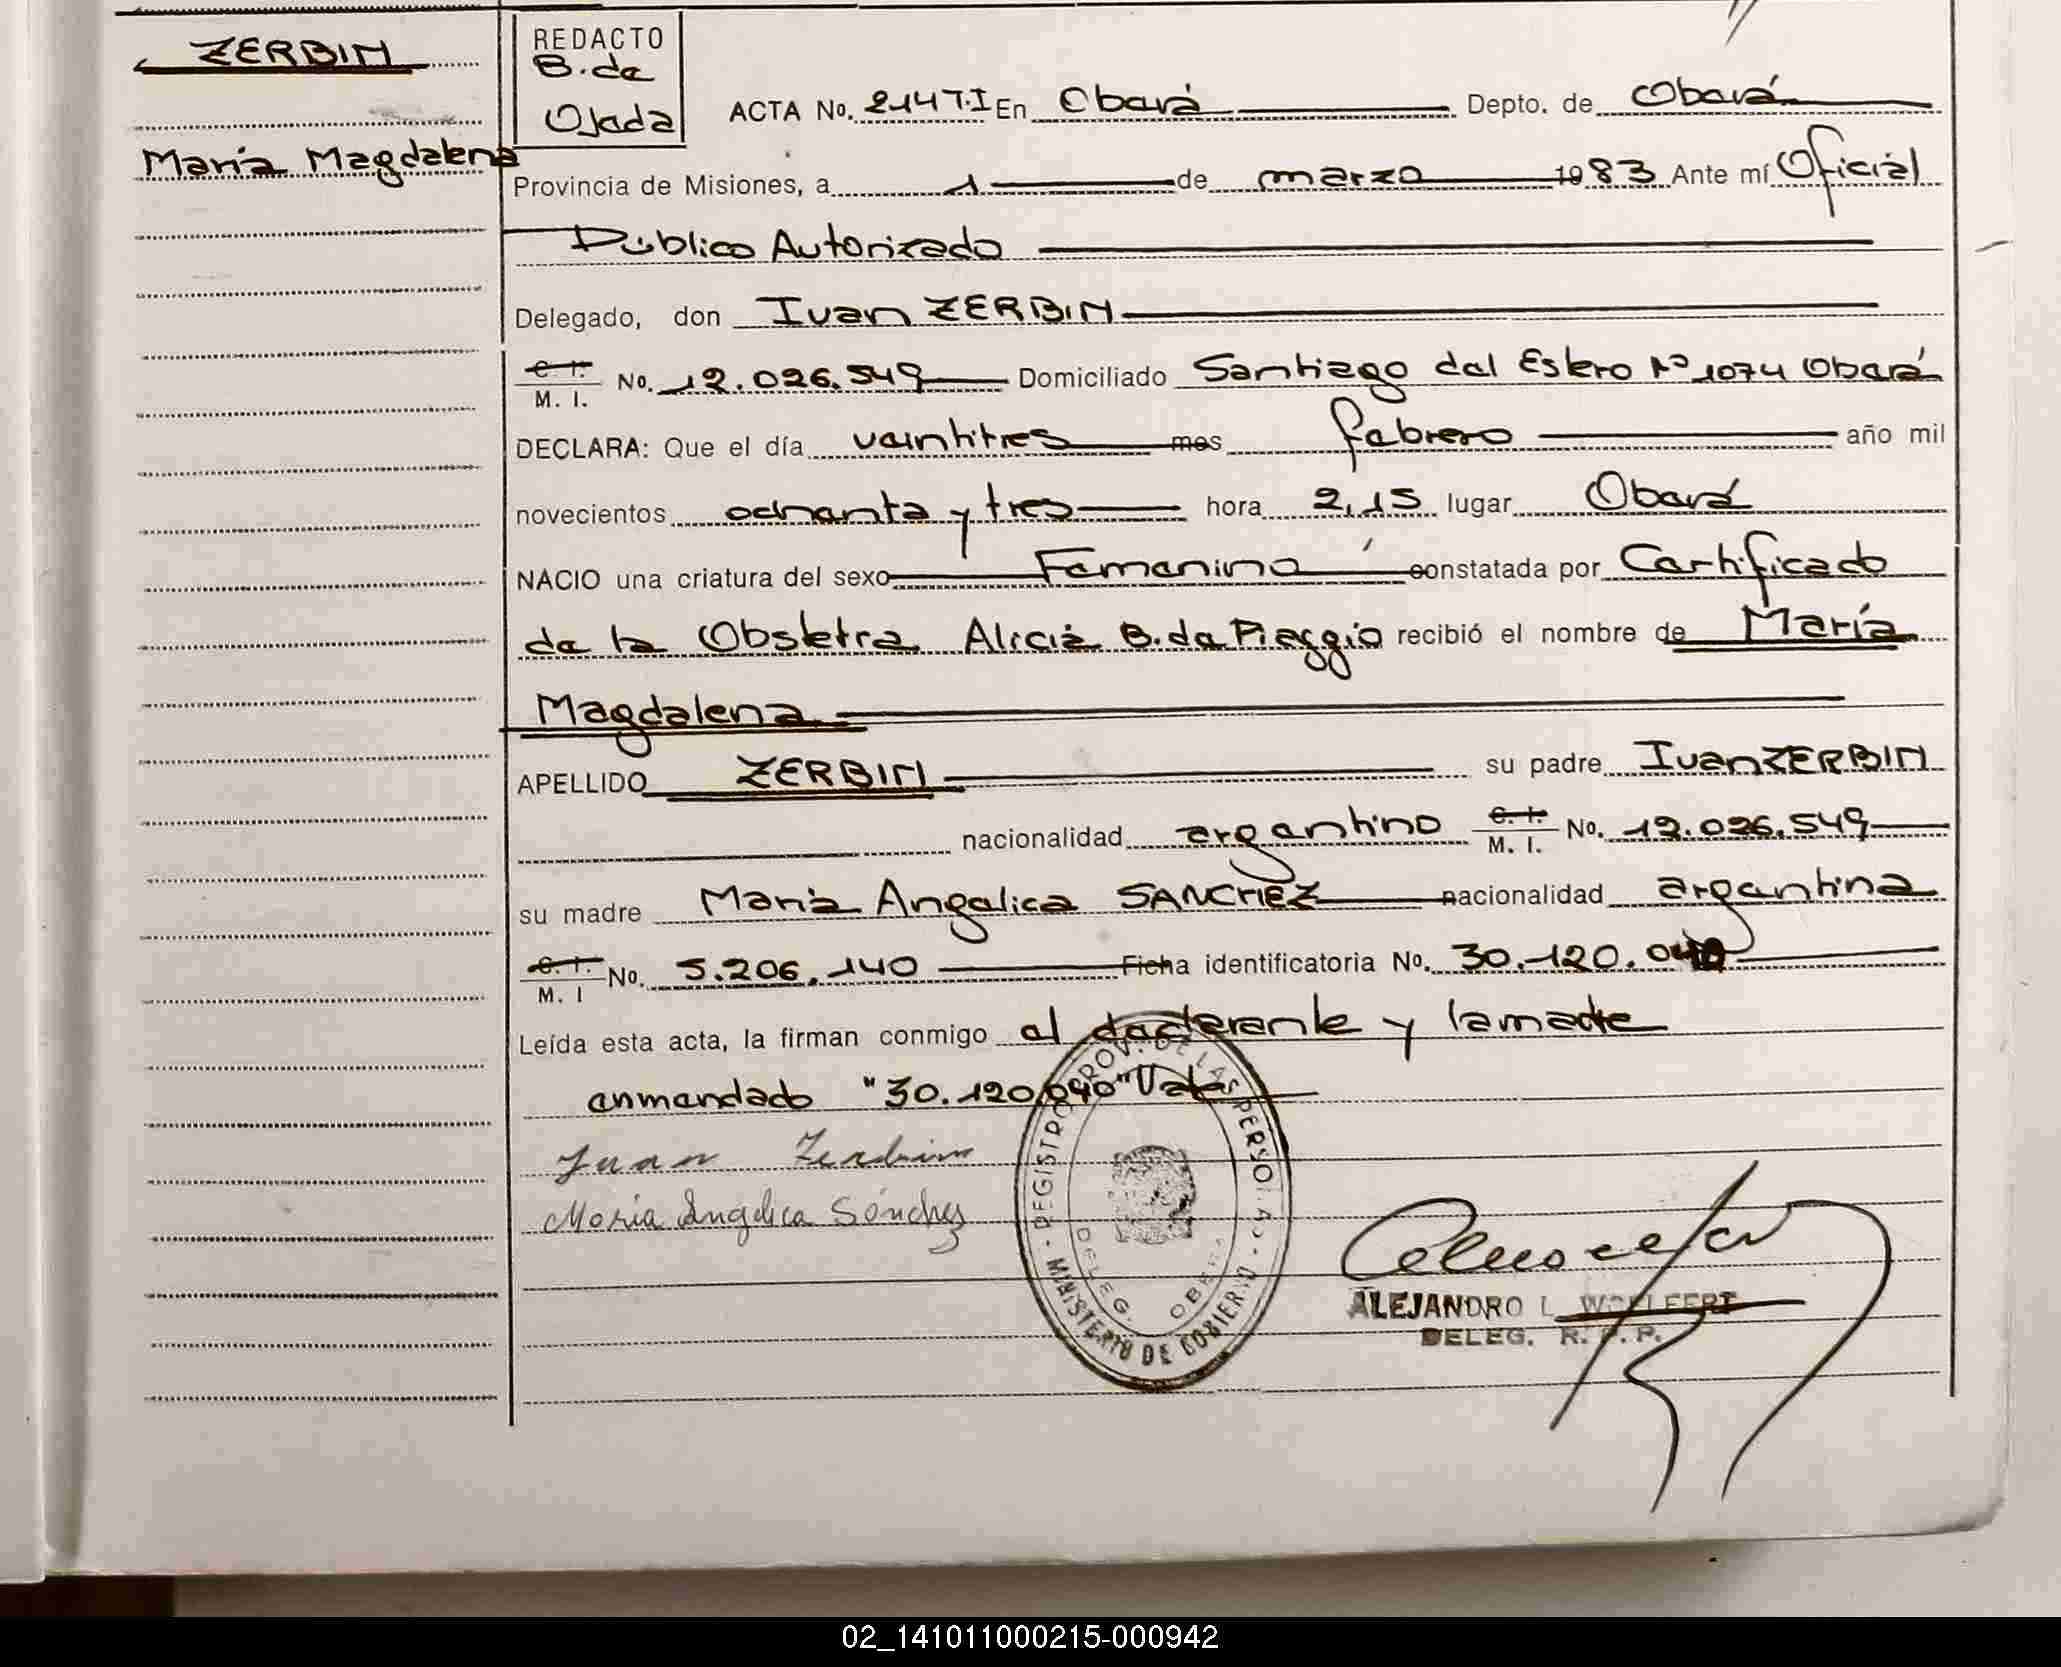 ZERBIN
María Magdalena
REDACTO
B. de
Ojeda
ACTA No. 214 T.I En Oberá Depto. de Oberá
Provincia de Misiones, a 1 de marzo 1983 Ante mí Oficial
Público Autorizado
Delegado, don Iván ZERBIN
C. I. M. I. No. 12.026.549 Domiciliado Santiago del Estero Nº 1074 Oberá
DECLARA: Que el día veintitres mes febrero año mil
novecientos ochenta y tres hora 2,15 lugar Oberá
NACIO una criatura del sexo Femenino constatada por Certificado
de la Obstetra Alicia B. de Piaggio recibió el nombre de María
Magdalena
APELLIDO ZERBIN su padre Iván ZERBIN
nacionalidad argentino C. I. M. I. No. 12.026.549
su madre María Angelica SANCHEZ nacionalidad argentina
C. I. M. I No. 5.206.140 Ficha identificatoria No. 30.120.040
Leída esta acta, la firman conmigo el declarante y la madre
enmendado "30.120.040" Vale
Juan Zerbin
María Angelica Sánchez
REGISTRO PROV. DE LAS PERSONAS
MINISTERIO DE GOBIERNO
DELEG. OBERA
ALEJANDRO L. WOELFERT
DELEG. R. P. P.
02_141011000215-000942